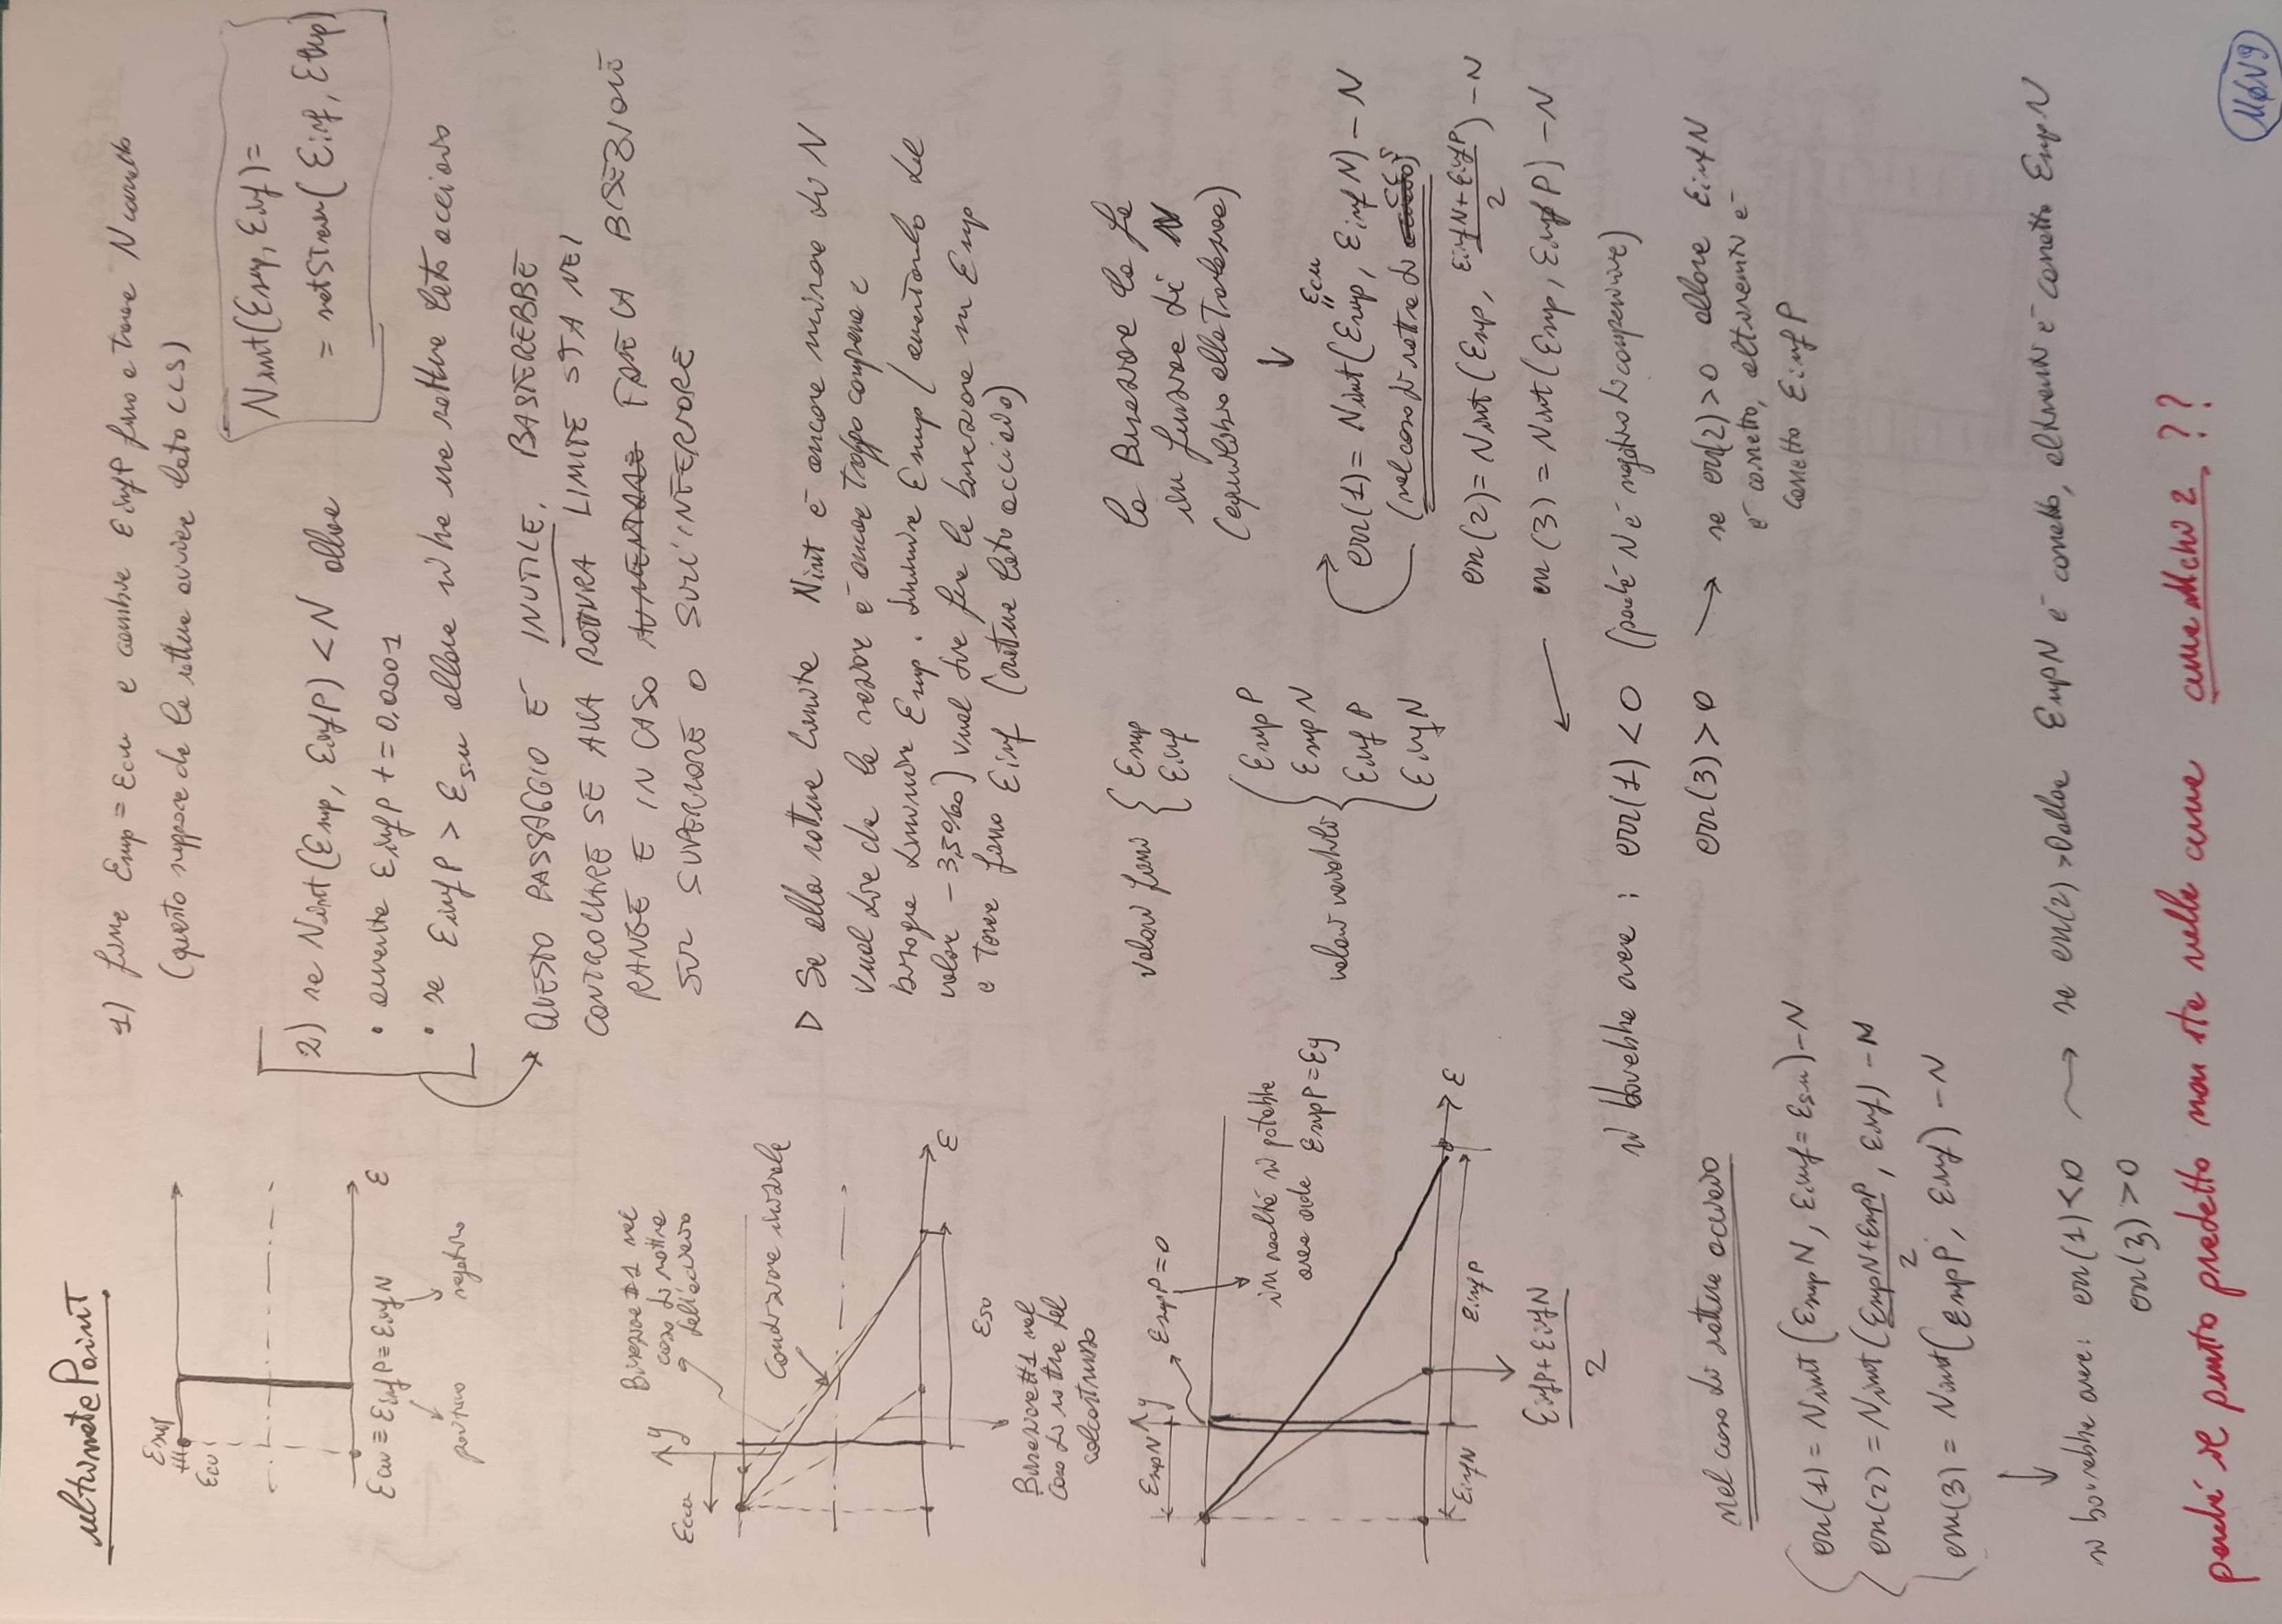 ultimatePoint
εsup
εcu
εcu ≡ εinfP ≡ εinfN
ε
positivo
negativo
1) fissa εsup = εcu e cambia εinfP fino a trovare N corretto
(questo suppone che la rottura avviene lato CLS)
Nint(εsup, εinf) =
= setStrain(εinf, εsup)
2) se Nint(εsup, εinfP) < N allora
• aumenta εinfP += 0,0001
• se εinfP > εsu allora si ha una rottura lato acciaio
QUESTO PASSAGGIO È INUTILE, BASTEREBBE
CONTROLLARE SE ALLA ROTTURA LIMITE STA NEL
RANGE E IN CASO AUMENTARE FARE LA BISEZIONE
SUL SUPERIORE O SULL'INFERIORE
Bisezione #1 nel
caso di rottura
dell'acciaio
y
εccu
Condizione iniziale
ε
εsu
Bisezione #1 nel
caso di rottura del
calcestruzzo
▷ Se alla rottura limite Nint è ancora minore di N
vuol dire che la sezione è ancora troppo compressa e
bisogna diminuire εsup. Diminuire εsup (aumentando del
valore -3,5‰) vuol dire fare la bisezione su εsup
e tenere fisso εinf (rottura lato acciaio)
εsupN
y
εsupP = 0
in realtà si potrebbe
avere anche εsupP = εy
ε
εinfN
εinfP
εinfP + εinfN
2
valori fissi { εsup
εinf
valori variabili { εsupP
εsupN
εinfP
εinfN
la Bisezione la fa
in funzione di N
(equilibrio alla Traslazione)
εcu
"
err(1) = Nint(εsup, εinfN) - N
(nel caso di rottura di acciaio CLS)
err(2) = Nint(εsup, εinfN + εinfP / 2) - N
err(3) = Nint(εsup, εinfP) - N
si dovrebbe avere: err(1) < 0 (perché N è negativo di compressione)
err(3) > 0 → se err(2) > 0 allora εinfN
è corretto, altrimenti è
corretto εinfP
nel caso di rottura acciaio
err(1) = Nint(εsupN, εinf = εsu) - N
err(2) = Nint(εsupN + εsupP / 2, εinf) - N
err(3) = Nint(εsupP, εinf) - N
si dovrebbe avere: err(1) < 0 → se err(2) > 0 allora εsupN è corretto, altrimenti è corretto εsupN
err(3) > 0
perché il punto predetto non sta nella curva ??